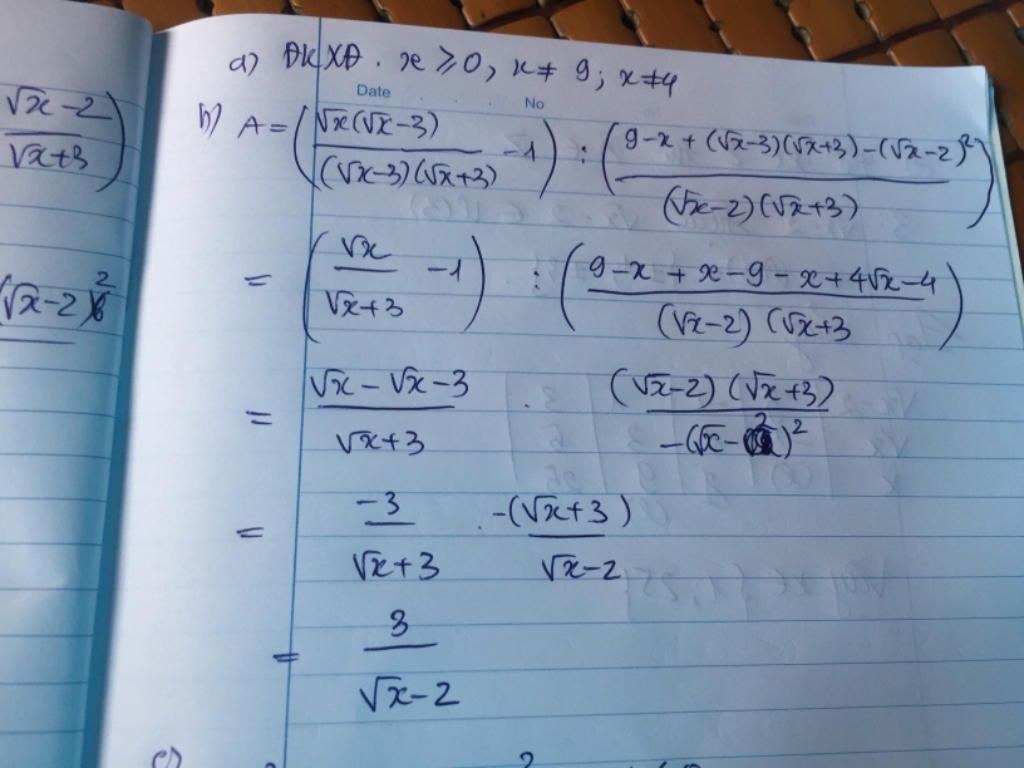 √x-2
√x+3
(√x-2)²
a) ĐKXĐ. x ⩾ 0, x ≠ 9; x ≠ 4
Date No
b) A = (√x(√x-3) / (√x-3)(√x+3) - 1) : (9-x + (√x-3)(√x+3) - (√x-2)² / (√x-2)(√x+3))
= (√x / √x+3 - 1) : (9-x + x-9 - x+4√x-4 / (√x-2)(√x+3)
= √x - √x - 3 / √x+3 . (√x-2)(√x+3) / -(√x-2)²
= -3 / √x+3 . -(√x+3) / √x-2
= 3 / √x-2
c)